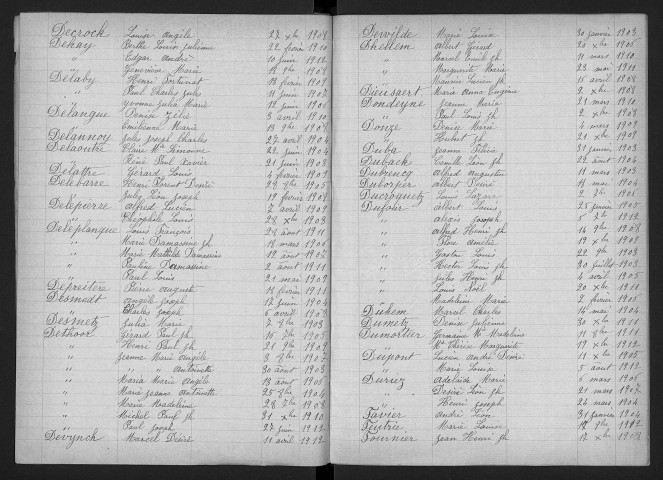 Decrock Louise Angèle 27 Xbre 1908
Dehay Berthe Louise Julienne 22 février 1910
" Edgar André 10 juin 1911
" Geneviève Marie 12 9bre 1908
Delaby Henri Fortunat 18 février 1908
" Paul Charles Jules 11 juin 1907
" Yvonne Julia Marie 12 juin 1906
Delanque Denise Zélie 3 avril 1910
" Emilienne Marie 13 9bre 1908
Delannoy Jules Joseph Charles 27 avril 1904
Delaoutre Claire Mie 22 juin 1904
" Réné Paul Xavier 21 juin 1908
Delattre Gérard Louis 4 février 1909
Delebarre Henri Florent Désiré 22 9bre 1905
" Jules Léon Joseph 19 février 1908
Delepierre Alfred Lucien 7 avril 1909
" Théophile Louis 28 Xbre 1903
Deleplanque Louis François 28 août 1911
" Marie Damassine Jh 18 mars 1906
" Marie Mathilde Damassine 19 août 1902
" Pauline Damassine 2 août 1911
" Paul Louis 21 mai 1909
Depreitère Pierre Auguste 18 février 1911
Desmadt Angèle Joseph 17 juin 1904
" Charles Joseph 6 avril 1908
Desmetz Julia Marie 7 8bre 1903
Dethoor Gérard Paul Jh 10 7bre 1903
" Henri Paul Jh 20 9bre 1908
" Jeanne Marie Angèle 3 9bre 1907
" " " Antoinette 30 août 1903
" Maria Marie Angèle 18 août 1905
" Marie Jeanne Antoinette 25 8bre 1904
" Marie Madeleine 28 7bre 1908
" Michel Paul Jh 31 Xbre 1910
" Paul Joseph 27 juin 1912
Devynck Marcel Désiré 11 avril 1912
Dewilde Marie Louise 30 janvier 1903
Dhellem Albert Gérard 20 Xbre 1905
" Marcel Emile Jh 11 mars 1910
" Marguerite Marie 28 mai 1911
" Maurice Lucien Jh 15 avril 1908
Dieusaert Marie Anna Eugénie 2 Xbre 1908
Dondeyne Jeanne Maria 21 mars 1910
" Paul Louis Jh 2 Xbre 1908
Donze Denise Marie 4 mars 1909
" Hubert Jh 19 Xbre 1901
Duba Jeanne Silvie 31 janvier 1903
Duback Camille Léon Jh 22 août 1904
Dubreucq Alfred Augustin 11 mars 1903
Duborper Albert Désiré 18 mai 1904
Ducroquetz Louis Lazare 2 Xbre 1904
Dufour Albert Louis 25 janvier 1905
" Alois Joseph 5 7bre 1912
" Alfred Henri Jh 14 9bre 1908
" Flore Amélie 19 Xbre 1909
" Gaston Louis 22 9bre 1903
" Hector Louis Jh 30 juillet 1903
" Jules Henri Jh 4 avril 1905
" Louis Noël 20 Xbre 1910
" Madeleine Marie 2 février 1905
Duhem Marcel Charles 14 mai 1904
Dumetz Denise Julienne 30 Xbre 1911
Dumortier Germaine Mie Madeleine 18 8bre 1911
" Mie Thérèse Marguerite 19 Xbre 1907
Dupont Lucien André Désiré 11 Xbre 1905
" Marie Louise 5 août 1912
Duriez Adélaïde Marie 6 mars 1905
" Désiré Léon Jh 21 mars 1907
" Henri Joseph 24 mars 1904
Favier André Léon 31 janvier 1904
Feutrie Marie Louise 12 9bre 1912
Fournier Jean Henri Jh 17 Xbre 1908